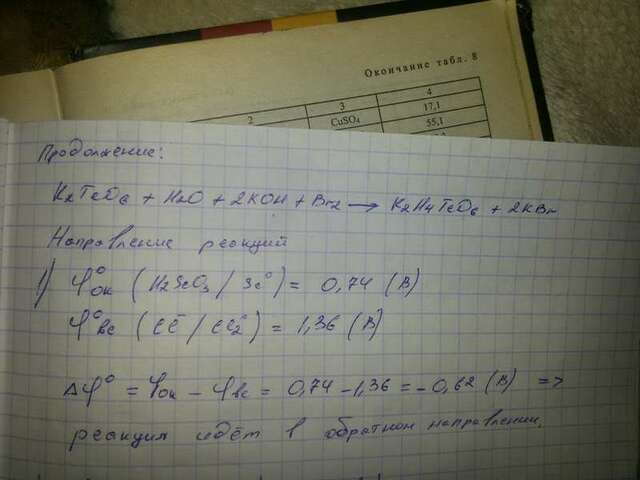 Окончание табл. 8
2 3 4
CuSO₄ 17,1
55,1
Продолжение:
K₂TeO₆ + H₂O + 2KOH + Br₂ → K₂H₄TeO₆ + 2KBr
Направление реакций
1) φ°ок (H₂SeO₃ / Se°) = 0,74 (В)
φ°вс (Cl⁻ / Cl₂°) = 1,36 (В)
Δφ° = φок - φвс = 0,74 - 1,36 = - 0,62 (В) =>
реакция идёт в обратном направлении.